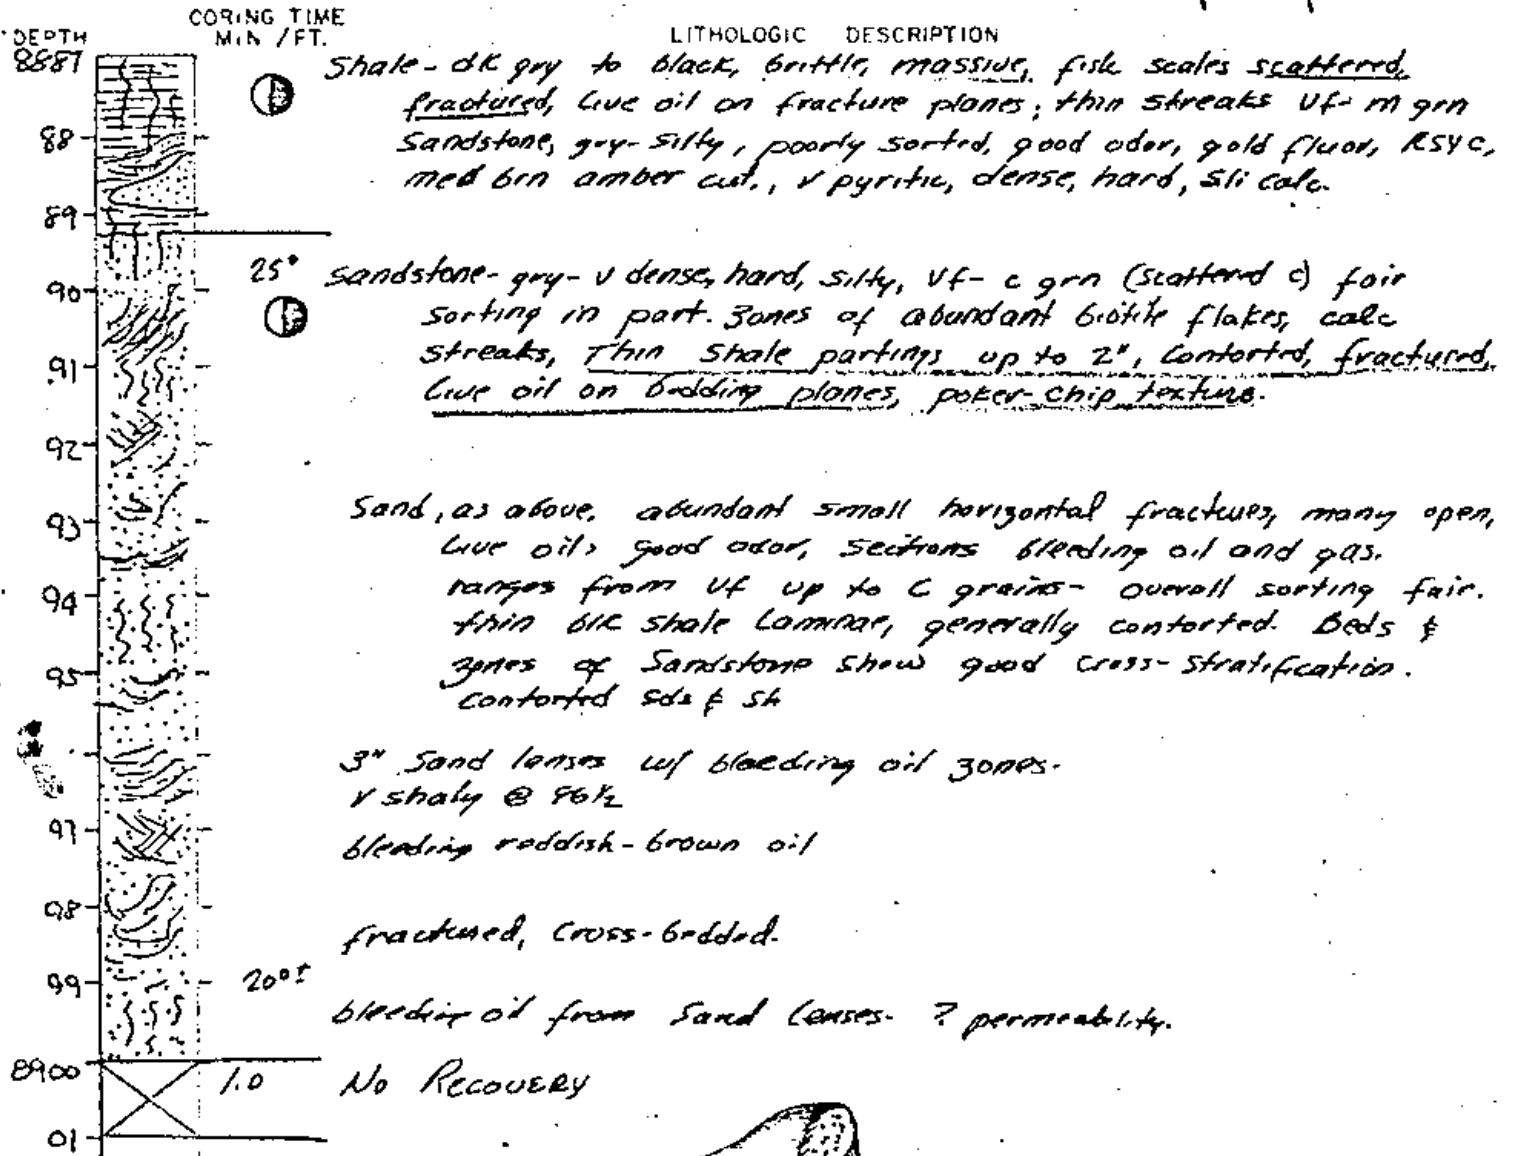 CORING TIME
DEPTH MIN /FT. LITHOLOGIC DESCRIPTION
8887 Shale - dk gry to black, brittle, massive, fish scales scattered,
fractured, live oil on fracture planes; thin streaks vf- m grn
88 Sandstone, gry- silty, poorly sorted, good odor, gold fluor, RSYC,
med brn amber cut., v pyritic, dense, hard, sli calc.
89
25° Sandstone- gry- v dense, hard, silty, vf- c grn (scattered c) fair
90 sorting in part. zones of abundant biotite flakes, calc
91 streaks, Thin Shale partings up to 2", contorted, fractured,
live oil on bedding planes, poker-chip texture.
92
93 Sand, as above, abundant small horizontal fractures, many open,
live oil, good odor, sections bleeding oil and gas.
94 ranges from vf up to c grains- overall sorting fair.
thin blk shale laminae, generally contorted. Beds &
95 zones of Sandstone show good cross-stratification.
contorted sds & sh
3" Sand lenses w/ bleeding oil zones.
v shaly @ 96½
97 bleeding reddish-brown oil
98 fractured, cross-bedded.
99 20°±
bleeding oil from Sand lenses- ? permeability.
8900 1.0 No RECOVERY
01